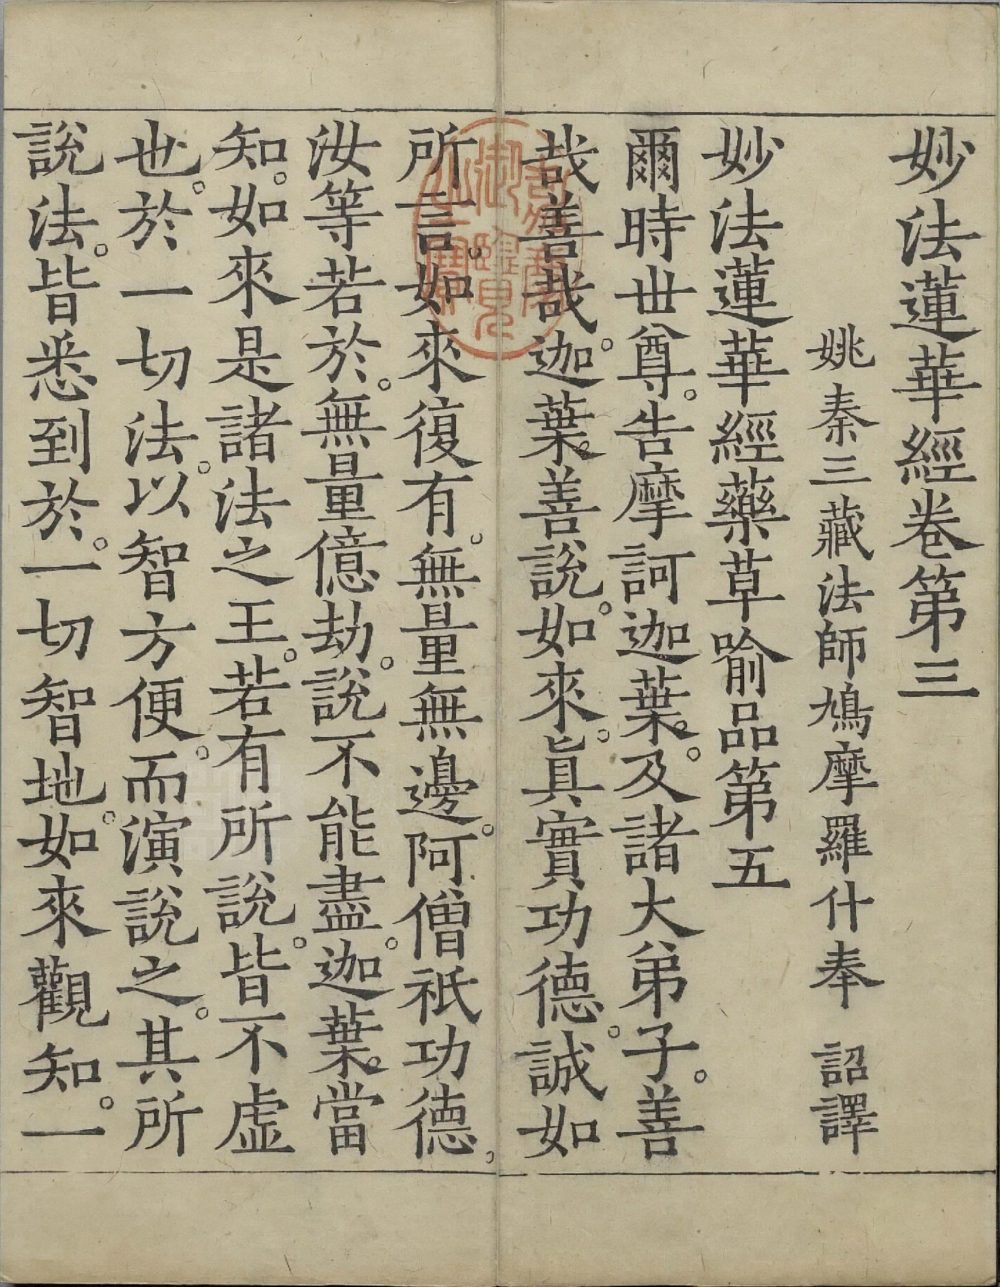 妙法蓮華經卷第三
姚秦三藏法師鳩摩羅什奉 詔譯
妙法蓮華經藥草喻品第五
爾時世尊。告摩訶迦葉。及諸大弟子。善
哉善哉。迦葉。善說。如來。眞實功德。誠如
所言。如來復有。無量無邊。阿僧祇功德。
汝等若於。無量億劫。說不能盡。迦葉。當
知。如來是諸法之王。若有所說。皆不虛
也。於一切法。以智方便。而演說之。其所
說法。皆悉到於。一切智地。如來觀知。一